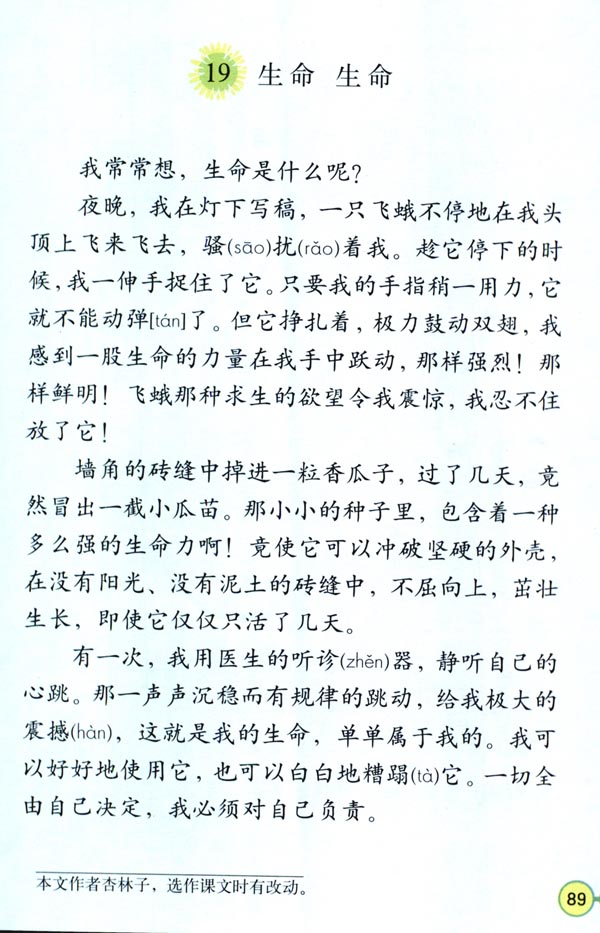 19 生命 生命
我常常想，生命是什么呢？
夜晚，我在灯下写稿，一只飞蛾不停地在我头
顶上飞来飞去，骚(sāo)扰(rǎo)着我。趁它停下的时
候，我一伸手捉住了它。只要我的手指稍一用力，它
就不能动弹[tán]了。但它挣扎着，极力鼓动双翅，我
感到一股生命的力量在我手中跃动，那样强烈！那
样鲜明！飞蛾那种求生的欲望令我震惊，我忍不住
放了它！
墙角的砖缝中掉进一粒香瓜子，过了几天，竟
然冒出一截小瓜苗。那小小的种子里，包含着一种
多么强的生命力啊！竟使它可以冲破坚硬的外壳，
在没有阳光、没有泥土的砖缝中，不屈向上，茁壮
生长，即使它仅仅只活了几天。
有一次，我用医生的听诊(zhěn)器，静听自己的
心跳。那一声声沉稳而有规律的跳动，给我极大的
震撼(hàn)，这就是我的生命，单单属于我的。我可
以好好地使用它，也可以白白地糟蹋(tà)它。一切全
由自己决定，我必须对自己负责。
本文作者杏林子，选作课文时有改动。
89